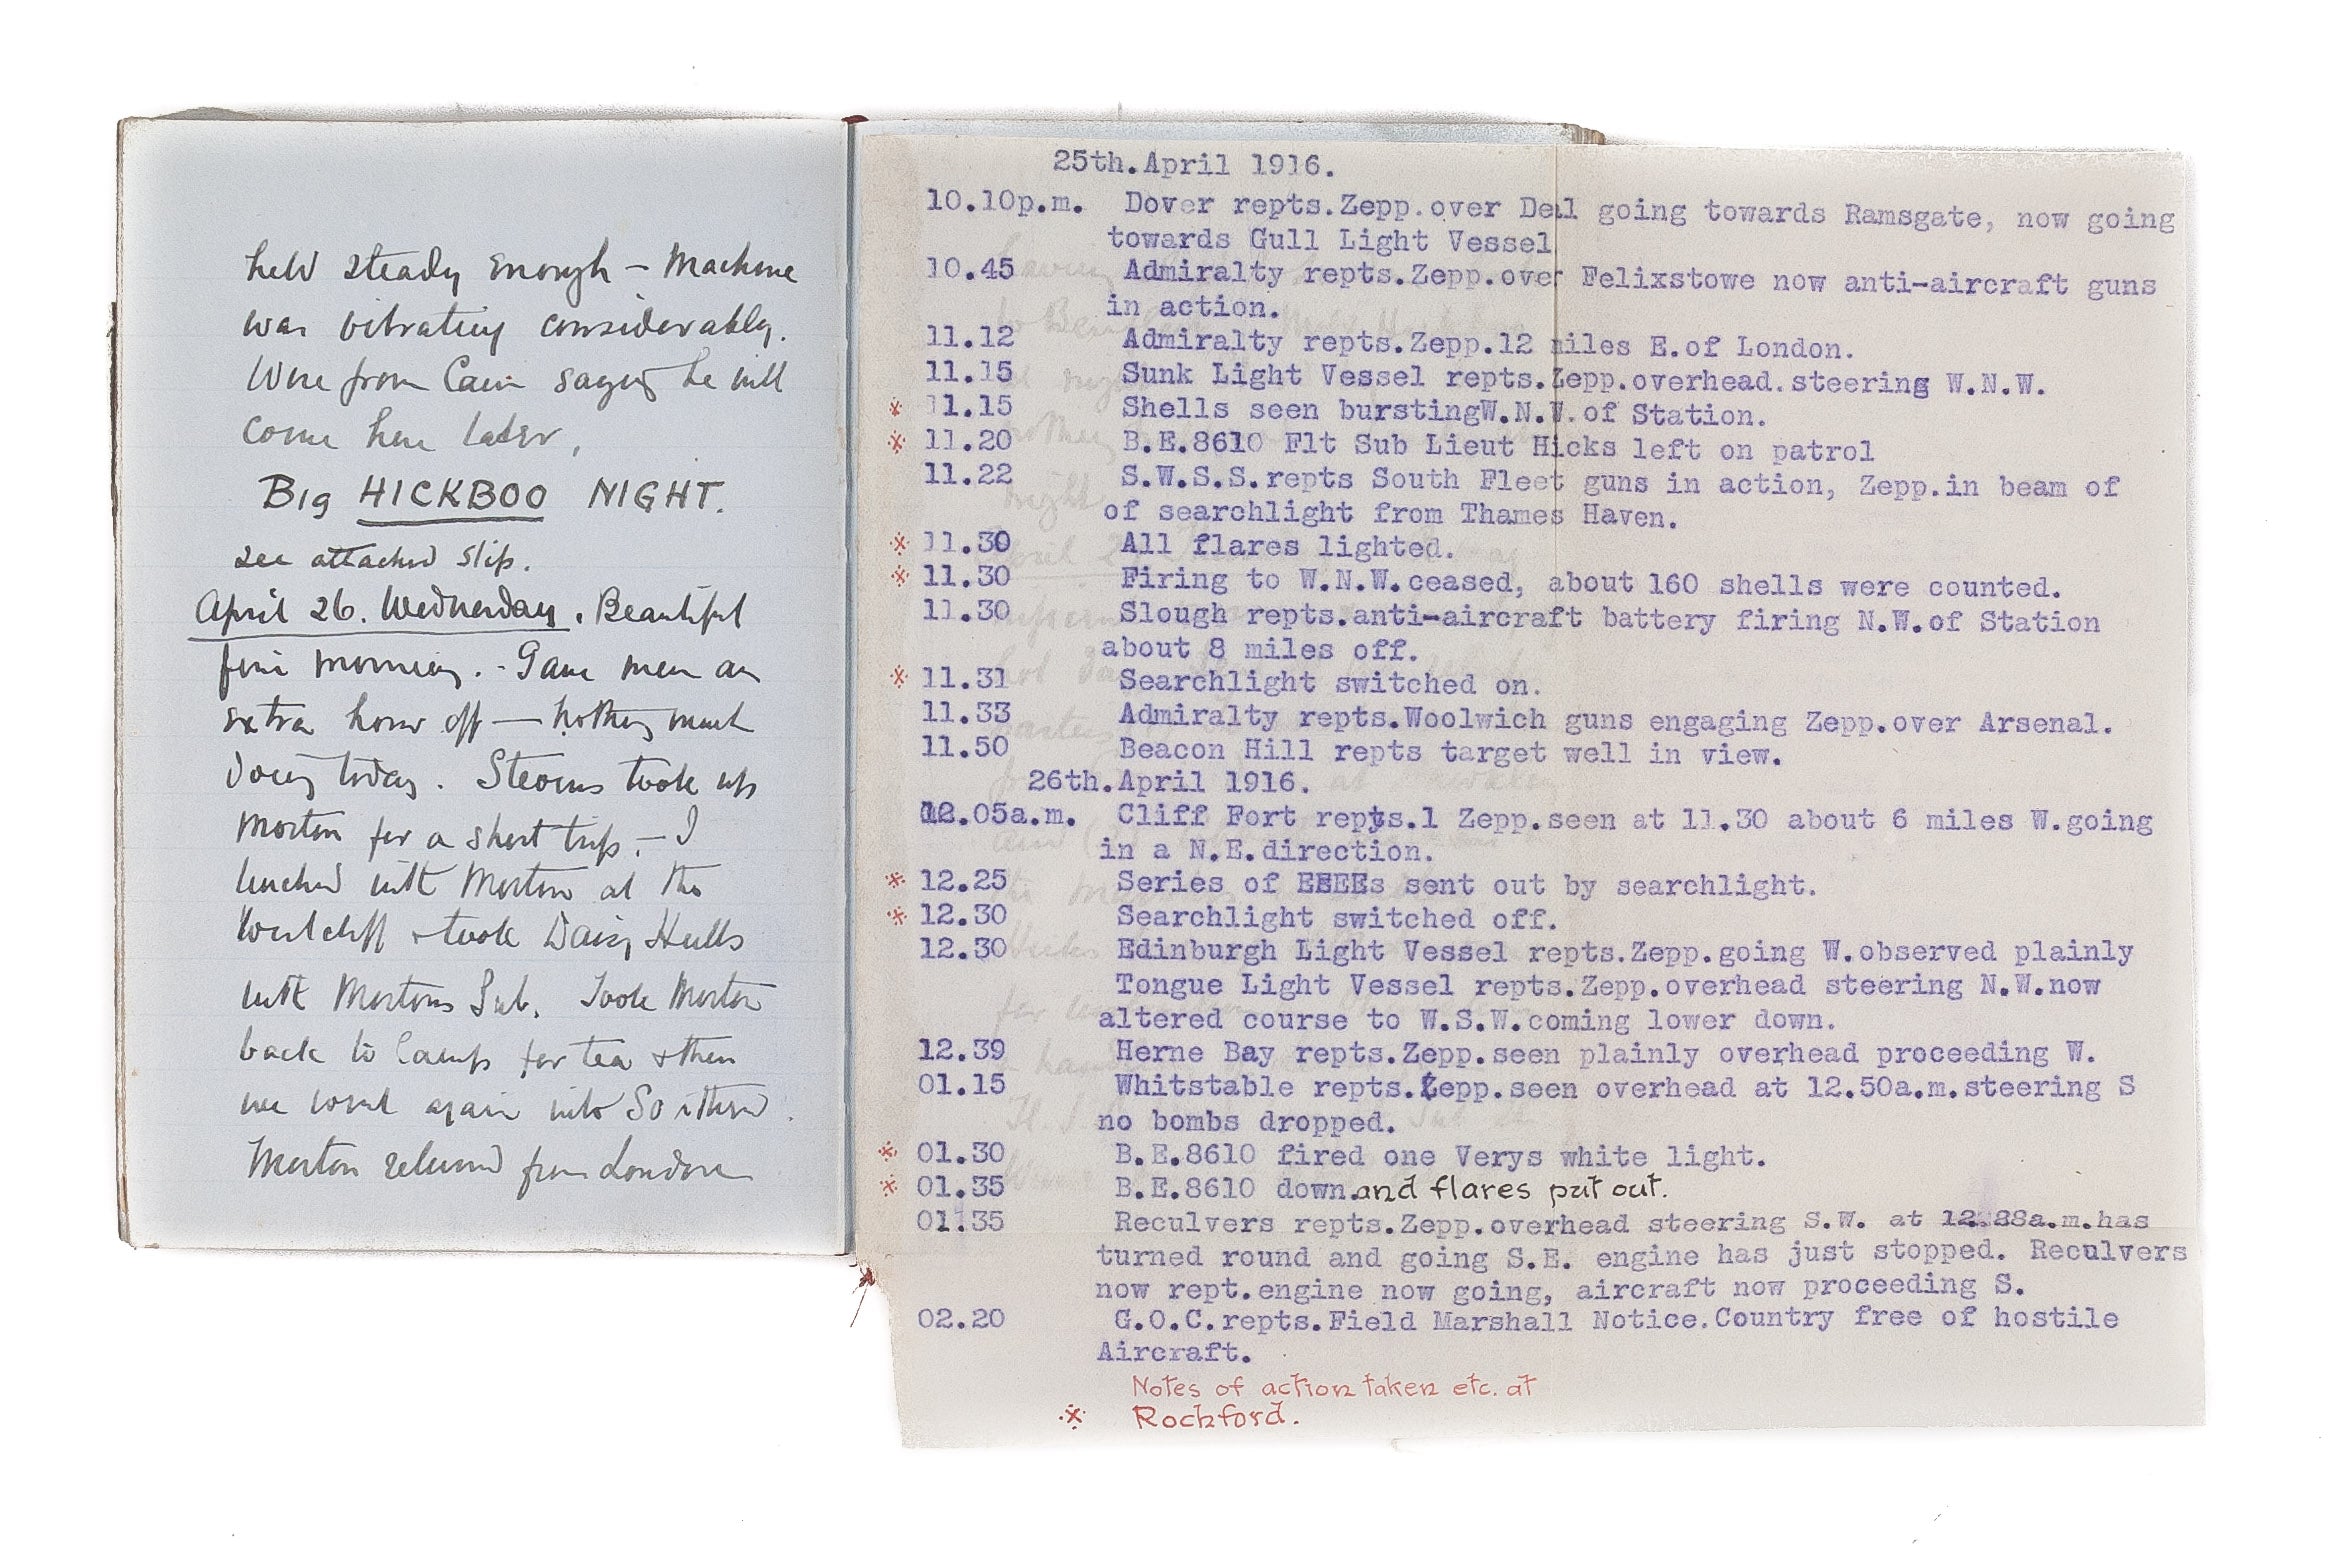 held steady enough — Machine
was vibrating considerably.
Wire from Cain saying he will
come here later,
Big HICKBOO NIGHT.
see attached slip.
April 26. Wednesday. Beautiful
fine morning. - Gave men an
extra hour off — nothing much
doing today. took up
Morton for a short trip. — I
lunched with Morton at the
Westcliff + took Daisy Hulls
with Mortons Sub. Took Morton
back to Camp for tea + then
we went again into Southend.
Morton returned from London
25th.April 1916.
10.10p.m. Dover repts.Zepp.over Deal going towards Ramsgate, now going
towards Gull Light Vessel
10.45 Admiralty repts.Zepp.over Felixstowe now anti-aircraft guns
in action.
11.12 Admiralty repts.Zepp.12 miles E.of London.
11.15 Sunk Light Vessel repts.Zepp.overhead.steering W.N.W.
※ 11.15 Shells seen burstingW.N.W.of Station.
※ 11.20 B.E.8610 Flt Sub Lieut Hicks left on patrol
11.22 S.W.S.S.repts South Fleet guns in action, Zepp.in beam of
of searchlight from Thames Haven.
※ 11.30 All flares lighted.
※ 11.30 Firing to W.N.W.ceased, about 160 shells were counted.
11.30 Slough repts.anti-aircraft battery firing N.W.of Station
about 8 miles off.
※ 11.31 Searchlight switched on.
11.33 Admiralty repts.Woolwich guns engaging Zepp.over Arsenal.
11.50 Beacon Hill repts target well in view.
26th.April 1916.
12.05a.m. Cliff Fort repts.1 Zepp.seen at 11.30 about 6 miles W.going
in a N.E.direction.
※ 12.25 Series of EEEEs sent out by searchlight.
※ 12.30 Searchlight switched off.
12.30 Edinburgh Light Vessel repts.Zepp.going W.observed plainly
Tongue Light Vessel repts.Zepp.overhead steering N.W.now
altered course to W.S.W.coming lower down.
12.39 Herne Bay repts.Zepp.seen plainly overhead proceeding W.
01.15 Whitstable repts.Zepp.seen overhead at 12.50a.m.steering S
no bombs dropped.
※ 01.30 B.E.8610 fired one Verys white light.
※ 01.35 B.E.8610 down.and flares put out.
01.35 Reculvers repts.Zepp.overhead steering S.W. at a.m.has
turned round and going S.E. engine has just stopped. Reculvers
now rept.engine now going, aircraft now proceeding S.
02.20 G.O.C.repts.Field Marshall Notice.Country free of hostile
Aircraft.
Notes of action taken etc. at
※ Rochford.